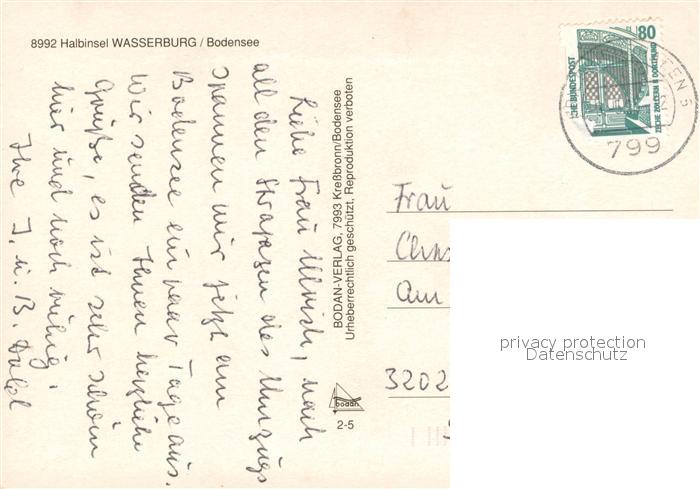 8992 Halbinsel WASSERBURG / Bodensee
Liebe Frau Ullrich, nach
all den Strapazen des Umzugs
spannen wir jetzt am
Bodensee ein paar Tage aus.
Wir senden Ihnen herzliche
Grüße, es ist sehr schön
hier und noch ruhig.
Ihre I. u. B.
BODAN-VERLAG, 7993 Kreßbronn/Bodensee
Urheberrechtlich geschützt, Reproduktion verboten
bodan
2-5
80
CHE BUNDESPOST
ZECHE ZOLLERN II DORTMUND
799
Frau
Am
3202
privacy protection
Datenschutz